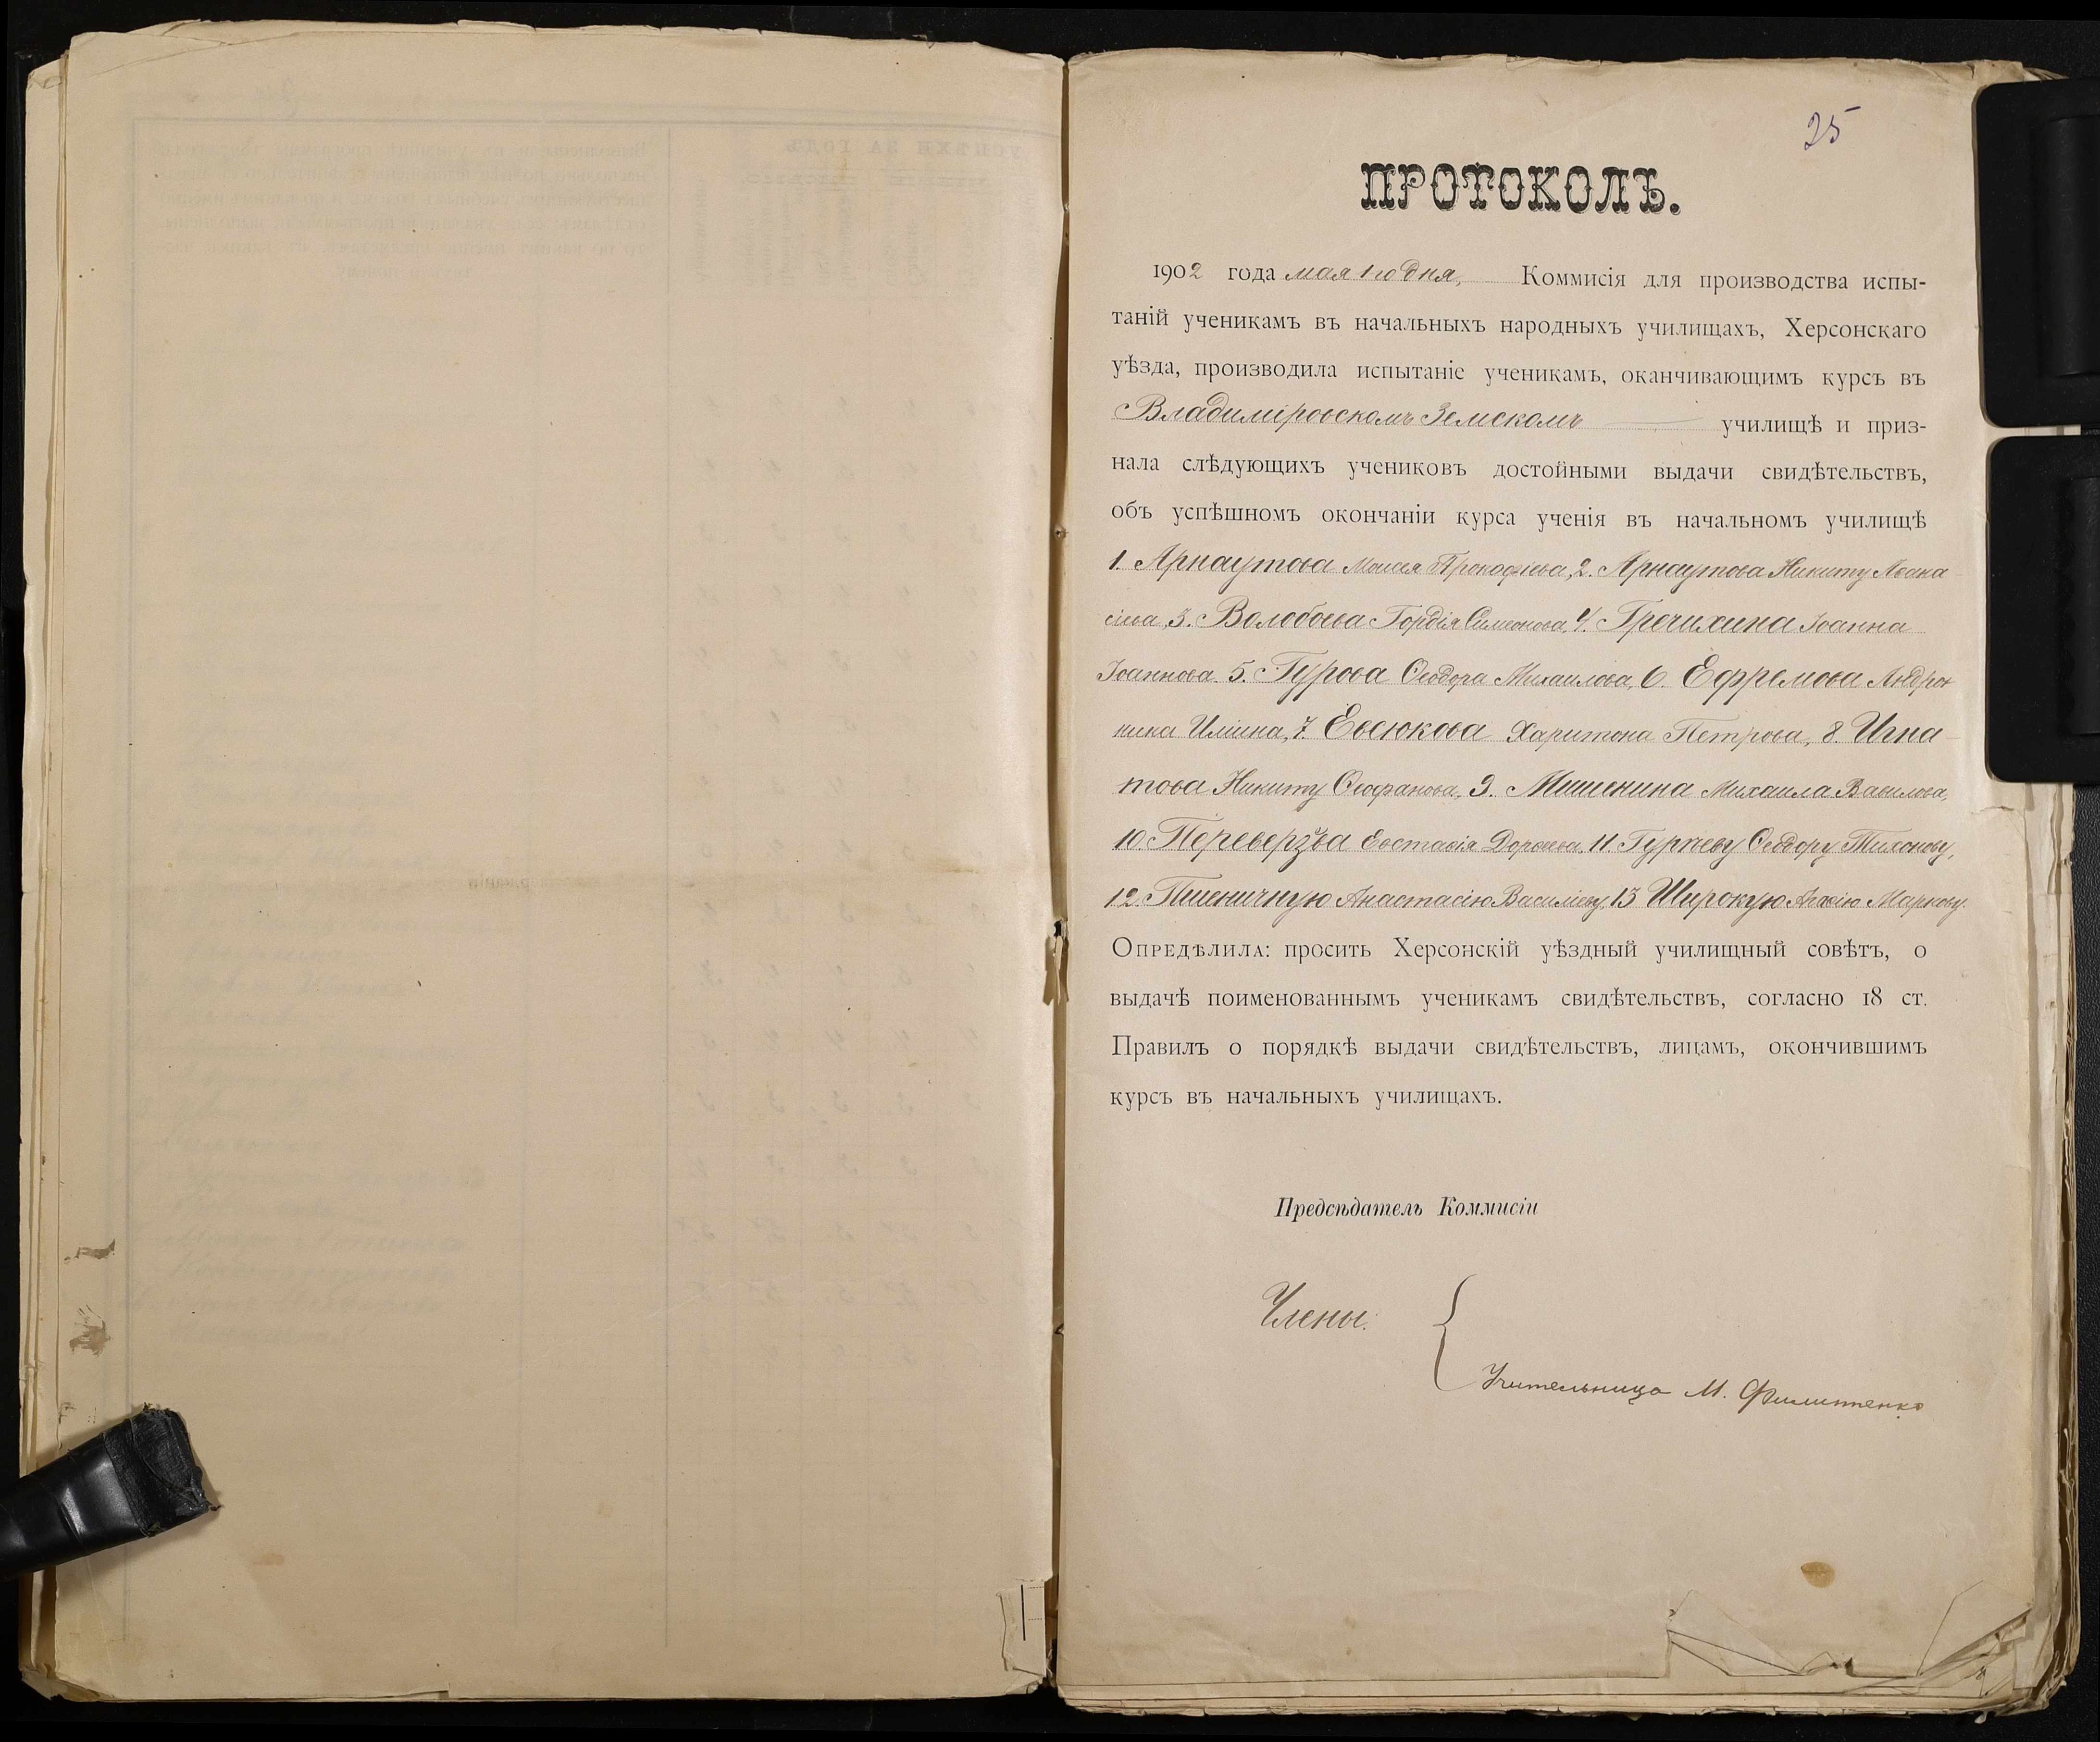 25
ПРОТОКОЛЪ.
1902 года мая 1го дня, Коммисія для производства испы-
таній ученикамъ въ начальныхъ народныхъ училищахъ, Херсонскаго
уѣзда, производила испытаніе ученикамъ, оканчивающимъ курсъ въ
Владиміровскомъ Земскомъ училищѣ и приз-
нала слѣдующихъ учениковъ достойными выдачи свидѣтельствъ,
объ успѣшномъ окончаніи курса ученія въ начальномъ училищѣ
1. Арнаутова Моисея Прокофіева, 2. Арнаутова Никиту Авана
сіева, 3. Волобоева Гордія Симеонова, 4. Гречихина Іоанна
Іоаннова 5. Гурова Ѳеодора Михаилова, 6. Ефремова Андро
ника Иліина, 7. Евсюкова Харитона Петрова, 8. Игна
това Никиту Ѳеофанова, 9. Мишенина Михаила Вавилова,
10. Переверзева Евстафія Дороѳеева, 11. Ѳеодору Тихонову,
12. Пшеничную Анастасію Василіеву, 13 Широкую Маркову.
Опредѣлила: просить Херсонскій уѣздный училищный совѣтъ, о
выдачѣ поименованнымъ ученикамъ свидѣтельствъ, согласно 18 ст.
Правилъ о порядкѣ выдачи свидѣтельствъ, лицамъ, окончившимъ
курсъ въ начальныхъ училищахъ.
Предсѣдатель Коммисіи
Члены:
Учительница М. Филиппенко